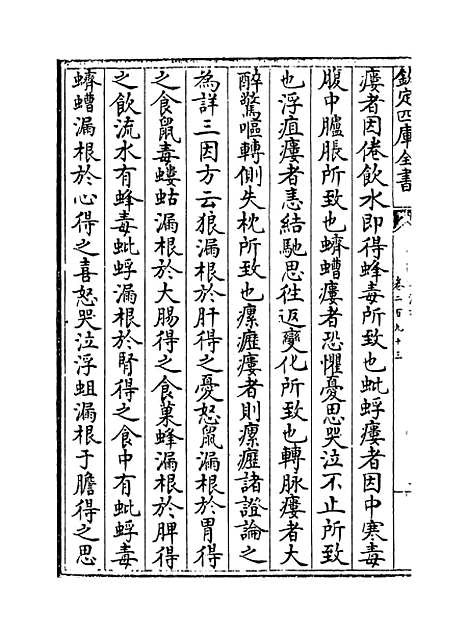 欽定四庫全書
卷二百九十三
瘻者因倦飲水即得蜂毒所致也蚍蜉瘻者因中寒毒
腹中臚脹所致也蠐螬瘻者恐懼憂思哭泣不止所致
也浮疽瘻者恚結馳思往返變化所致也轉脉瘻者大
醉驚嘔轉側失枕所致也瘰癧瘻者則瘰癧諸證論之
為詳三因方云狼漏根於肝得之憂怒鼠漏根於胃得
之食鼠毒螻蛄漏根於大腸得之食菓蜂漏根於脾得
之飲流水有蜂毒蚍蜉漏根於腎得之食中有蚍蜉毒
蠐螬漏根於心得之喜怒哭泣浮蛆漏根于膽得之思